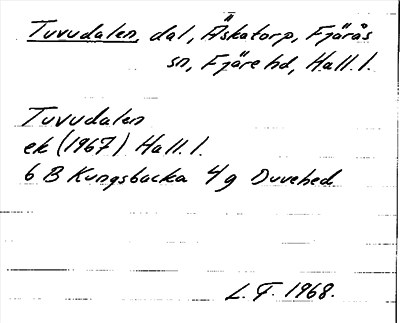 Tuvudalen, dal, Äskatorp, Fjärås
sn, Fjäre hd, Hall. l.
Tuvudalen
ek (1967) Hall. l.
6 B Kungsbacka 4g Duvehed
L. F. 1968.